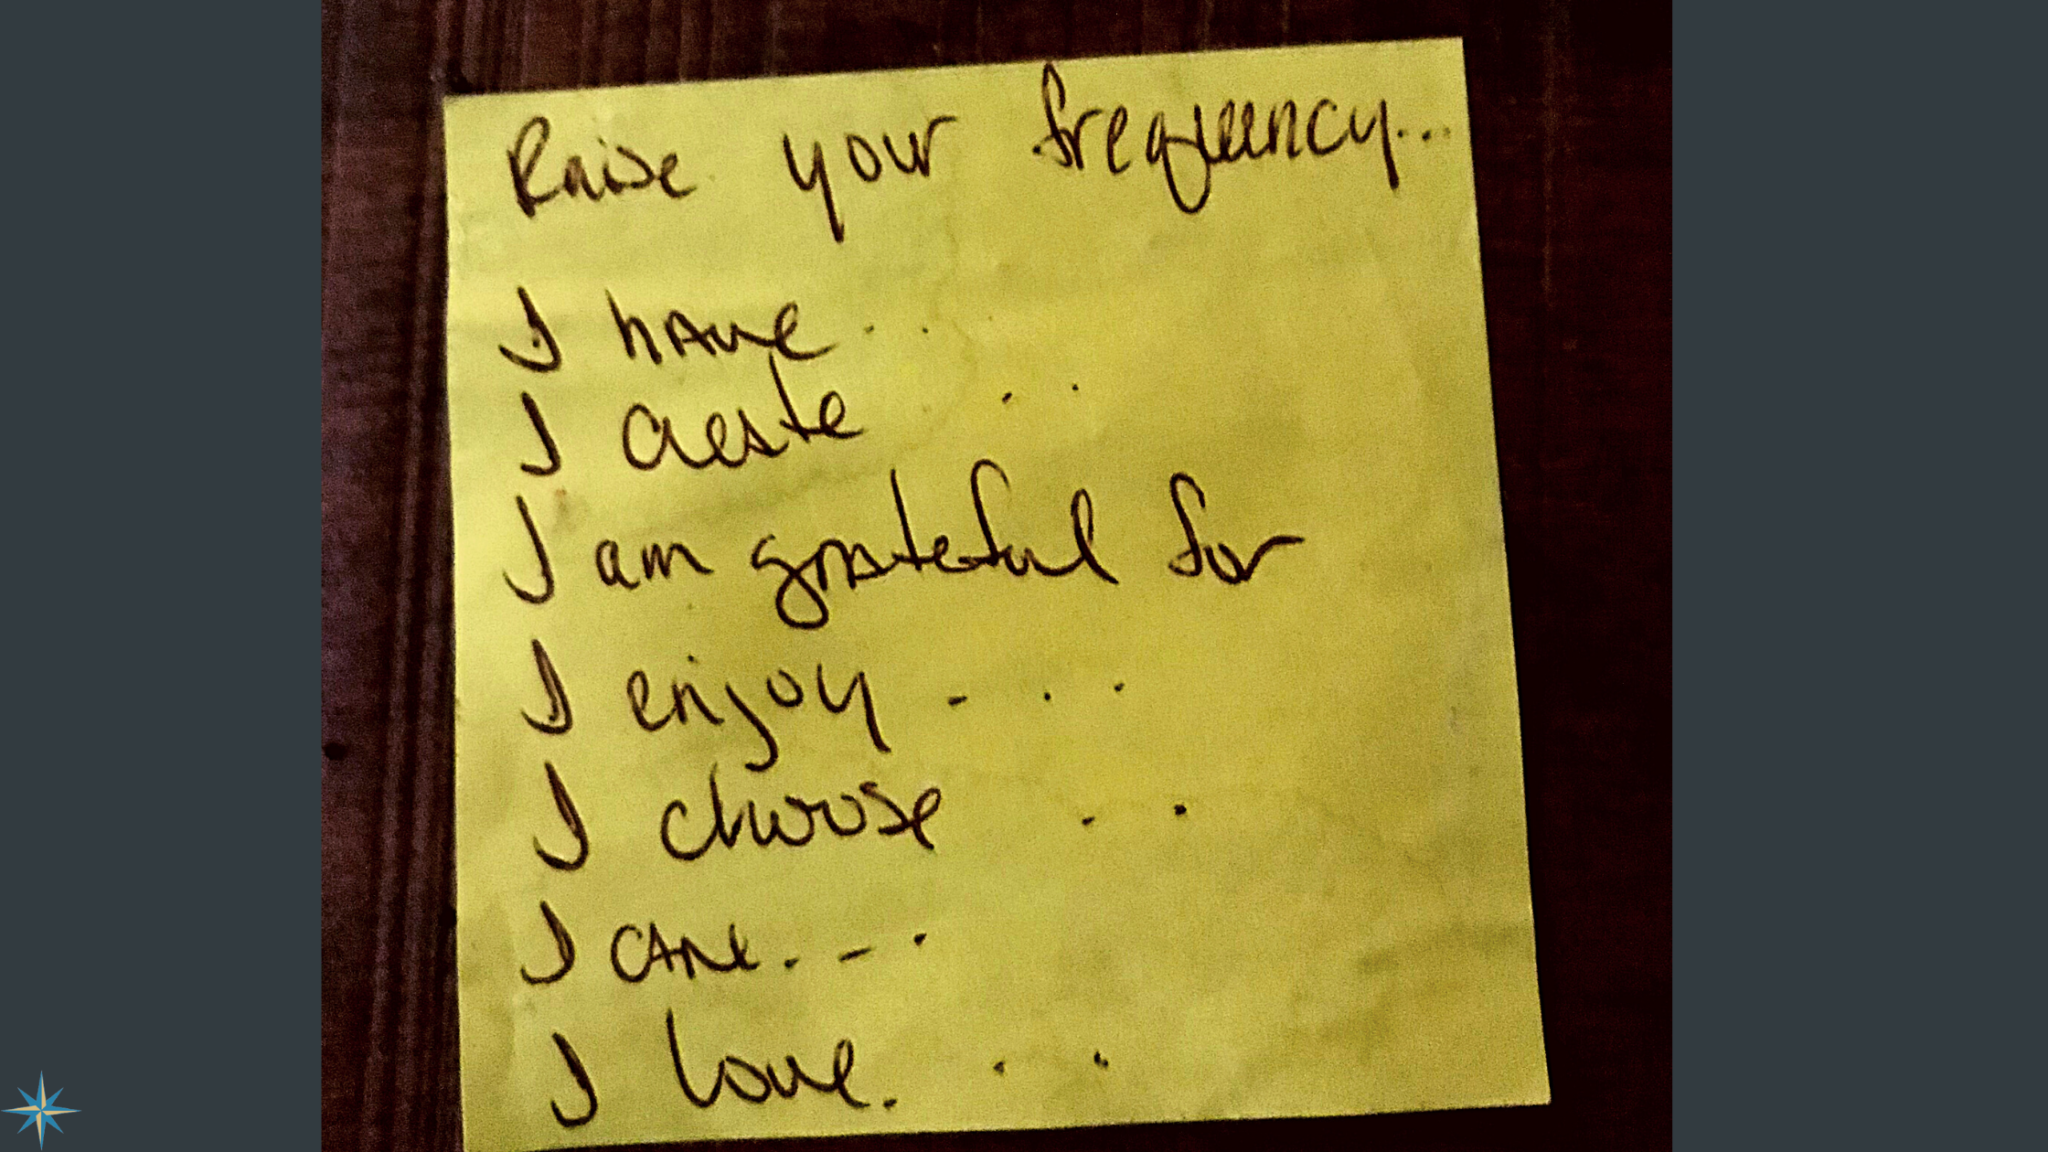 Raise your frequency...
I have...
I create ..
I am grateful for
I enjoy ...
I choose ..
I care...
I love...